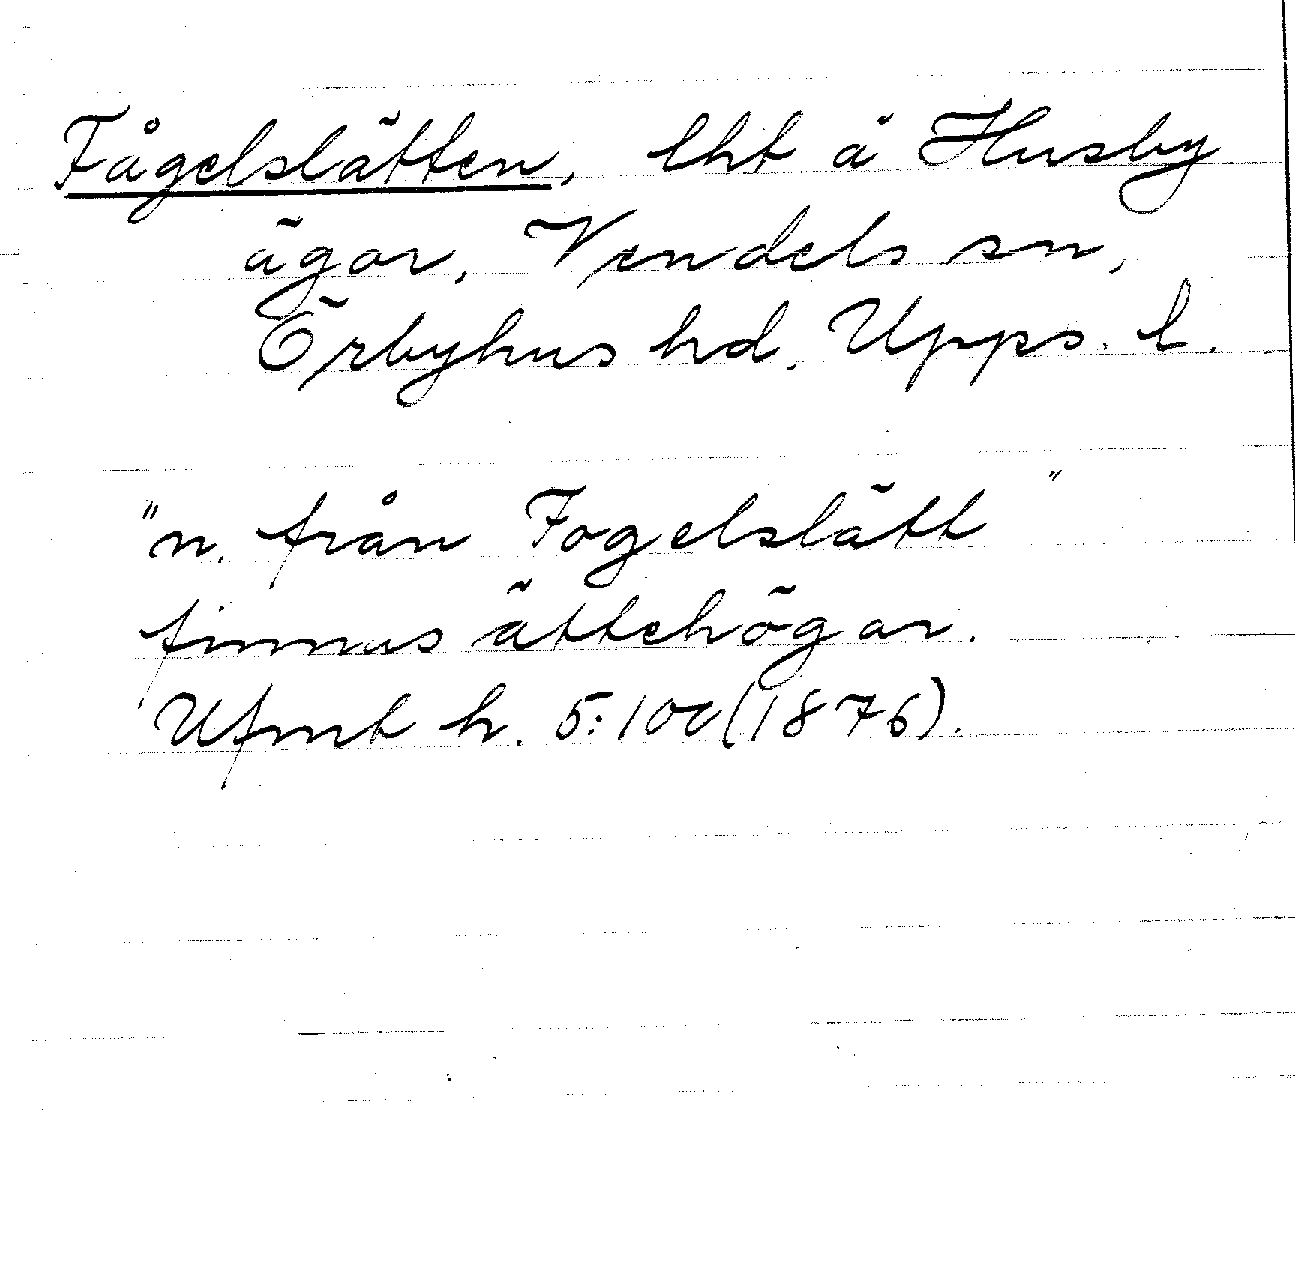 Fågelslätten, lht å Husby
ägor, Vendels sn,
Örbyhus hd. Upps. l.
"n. från Fogelslätt"
finnas ättehögar.
Ufmt h. 5:100 (1876).